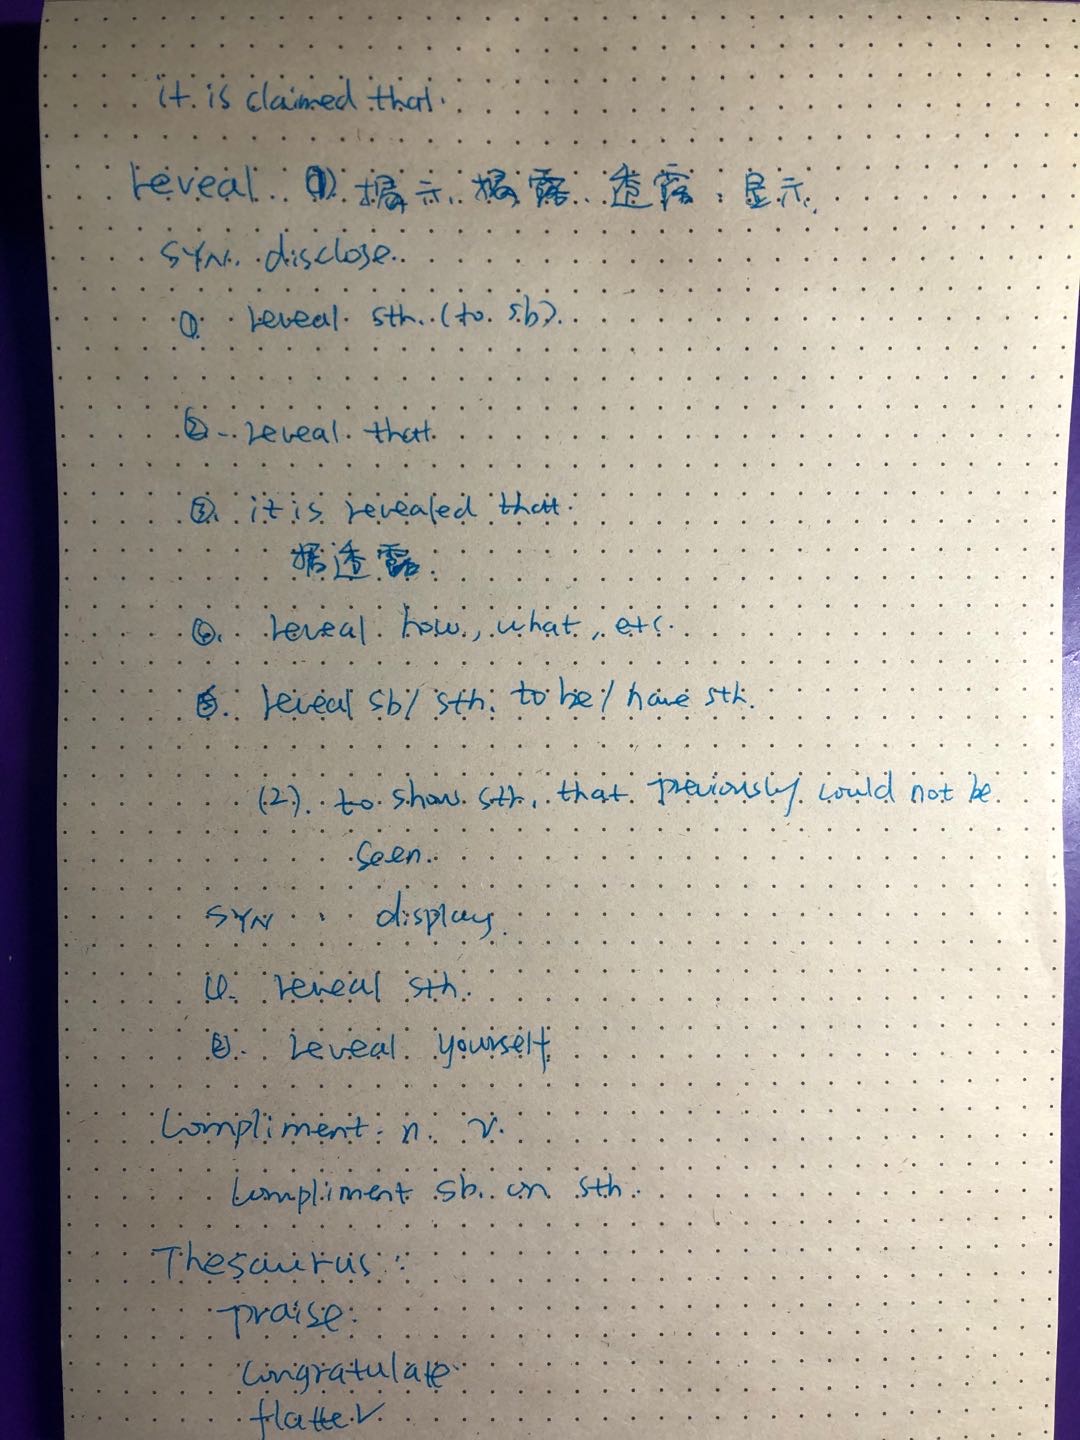 it is claimed that.
reveal (1) 揭示 揭露 透露 显示
SYN. disclose.
① reveal sth. (to sb).
② reveal that
③ it is revealed that.
据透露
④. reveal how, what, etc.
⑤. reveal sb/ sth. to be / have sth.
(2). to show sth. that previously could not be
seen.
SYN display.
①. reveal sth.
②. reveal yourself
Compliment n. v.
compliment sb. on sth.
Thesaurus:
praise.
congratulate.
flatter